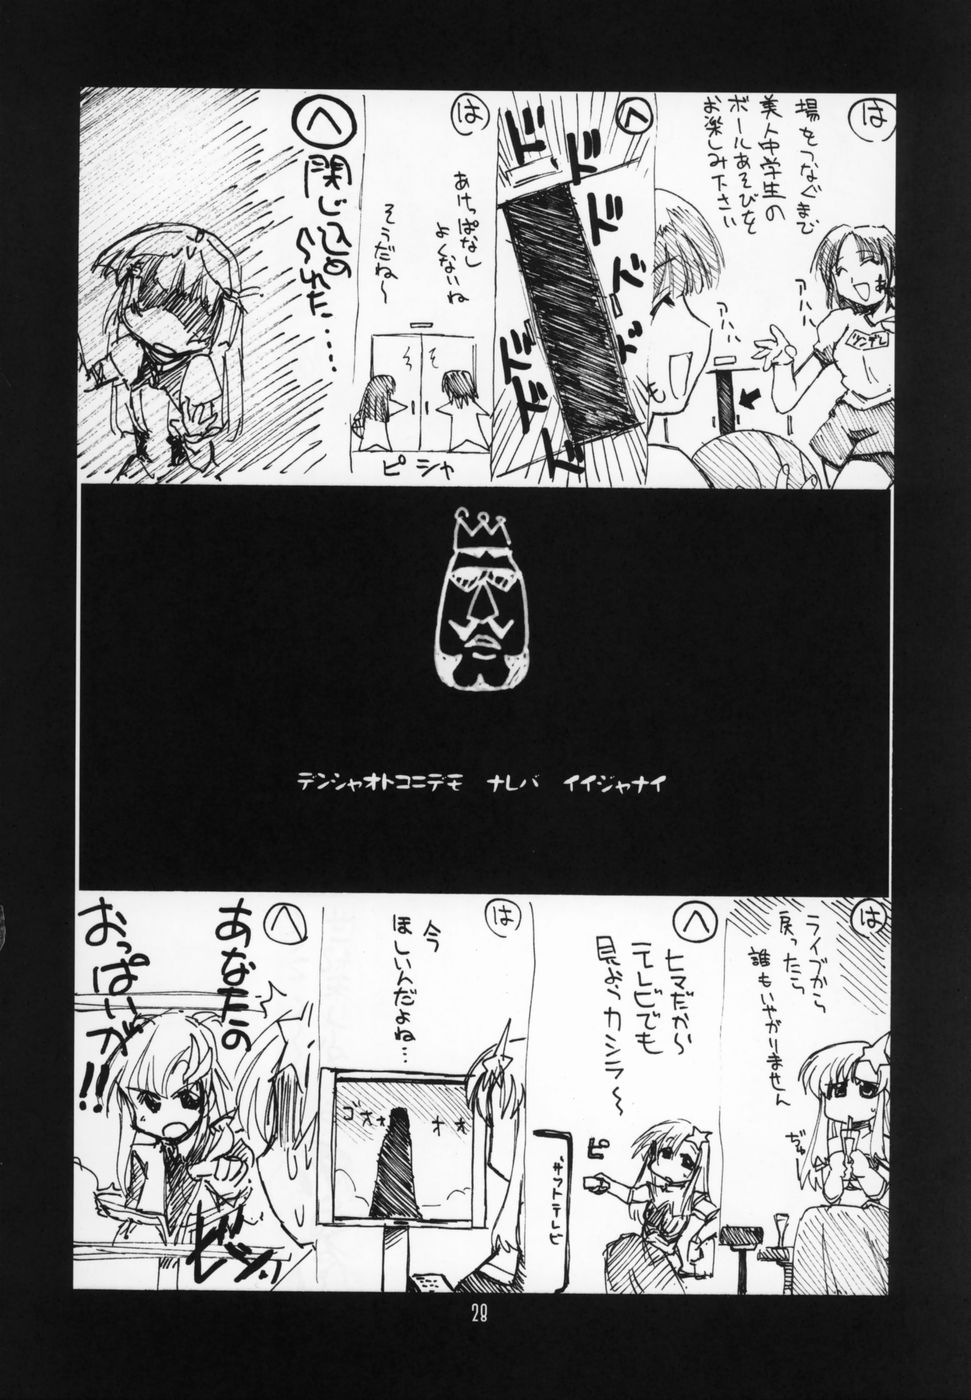 は
場をつなぐまで
美人中学生の
ボールあそびを
お楽しみ下さい
アハハ
アハハ
へ
ドドドドド
ドドドド
は
あけっぱなし
よくないね
そうだね〜
そ
そ
ピシャ
へ
閉じ込め
られた……
デンシャオトコニデモ ナレバ イイジャナイ
は
ライブから
戻ったら
誰もいやがりません
ぢゅー
へ
ヒマだから
テレビでも
見ようカシラ〜
ピ
は
今
ほしいんだよね…
ゴオォ
オオ
ザットテレビ
へ
あなたの
おっぱいが!!
ビシィ
28